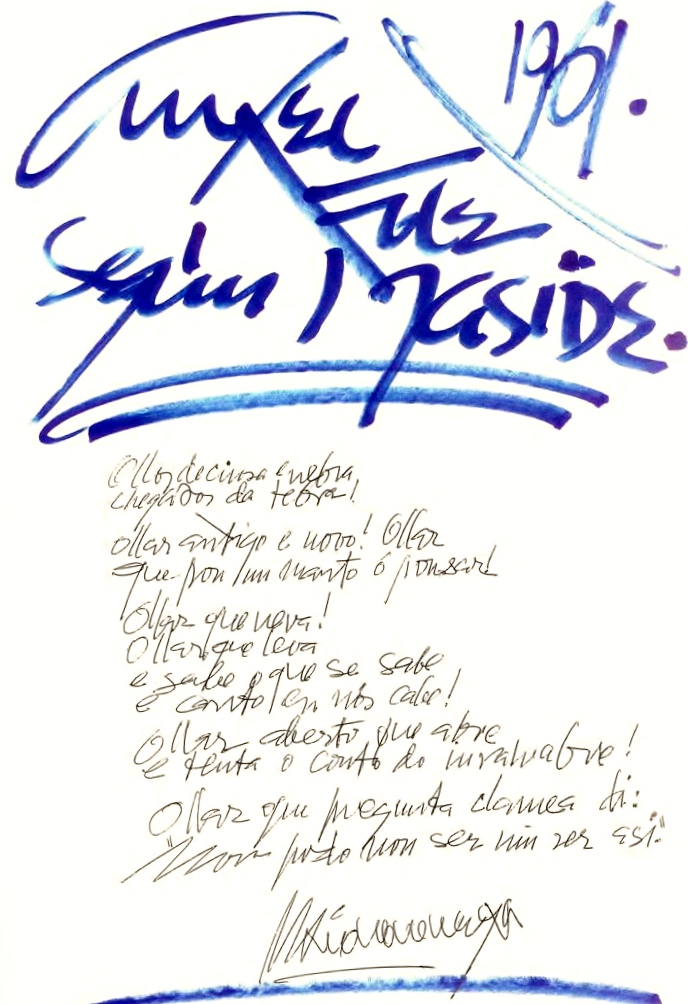 1961.
Anxel
Fole
Según Maside.
Ollos de cinsa e nebra
chegados da tebra!
Ollar antigo e novo! Ollar
que pon un manto ó pensar!
Ollar que neva!
Ollar que leva
e sabe o que se sabe
e canto en nós cabe!
Ollar aberto que abre
e tenta o conto do
Ollar que pregunta clamea di:
"Non podo non ser nin ser así."